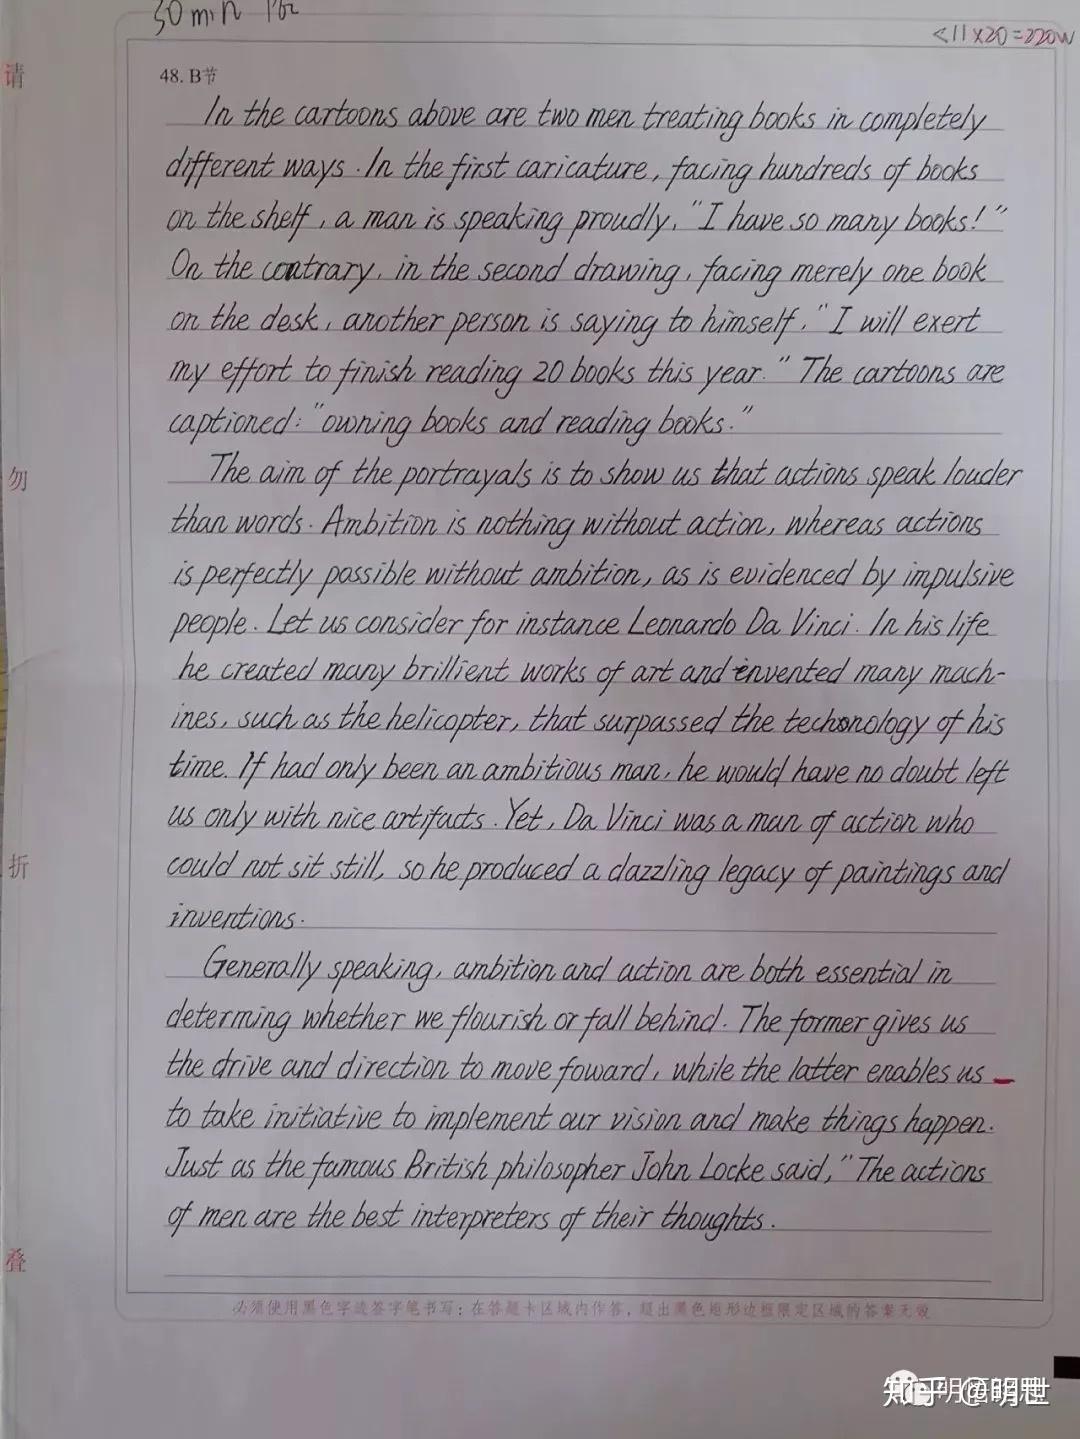 30 min
<11×20=220w
请
48. B节
In the cartoons above are two men treating books in completely
different ways. In the first caricature, facing hundreds of books
on the shelf, a man is speaking proudly, "I have so many books!"
On the contrary, in the second drawing, facing merely one book
on the desk, another person is saying to himself, "I will exert
my effort to finish reading 20 books this year." The cartoons are
captioned: "owning books and reading books."
The aim of the portrayals is to show us that actions speak louder
勿
than words. Ambition is nothing without action, whereas actions
is perfectly possible without ambition, as is evidenced by impulsive
people. Let us consider for instance Leonardo Da Vinci. In his life
he created many brillient works of art and invented many mach-
ines, such as the helicopter, that surpassed the techonology of his
time. If had only been an ambitious man, he would have no doubt left
us only with nice artifacts. Yet, Da Vinci was a man of action who
could not sit still, so he produced a dazzling legacy of paintings and
折
inventions.
Generally speaking, ambition and action are both essential in
determing whether we flourish or fall behind. The former gives us
the drive and direction to move foward, while the latter enables us
to take initiative to implement our vision and make things happen.
Just as the famous British philosopher John Locke said, "The actions
of men are the best interpreters of their thoughts.
叠
必须使用黑色字迹签字笔书写；在答题卡区域内作答，超出黑色矩形边框限定区域的答案无效
知乎 @明世